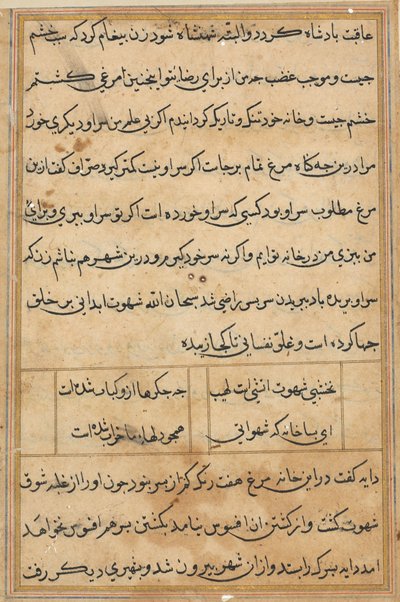 عاقبت بادشاه کردد والبته شهنشاه شود زن پیغام کرد که سبب خشم
چیست و موجب غضب چه من از برای رضای تو اینچنین مرغی کشتم
خشم چیست و خانه خود تنک و تاریک کردانیدم اکر بی علم من سر او دیکری خورد
مرا درین چه کناه مرغ تمام برجاست اکر سر او نیست کمتر کیر صراف کفت ازین
مرغ مطلوب سر او بود کسی که سر او خورده است اکر تو سر او ببری و برای
من ببزی من در خانه تو ایم و اکر نه سر خود کیرم و درین شهر هم نباشم زن که
سر او بریده باد ببریدن سر پسر راضی شد سبحان الله شهوت ابدانی بر خلق
جها کرده است و غلوی نفسانی تا کجا رسیده
نخشبی شهوت اتشی است لهیب
چه جکرها ازو کباب شده است
ای بسا خانه که شهوانی
همچو دلها خراب شده است
دایه کفت در این خانه مرغ هفت رنک کم از پسر نبود چون او را از غلبه شوق
شهوت کشت و از کشتن ان افسوس نیامد بکشتن پسر هم افسوس نخواهد
امد دایه پسر که را ستد و ازان شهر بیرون شد و بشهری دیکر رفت